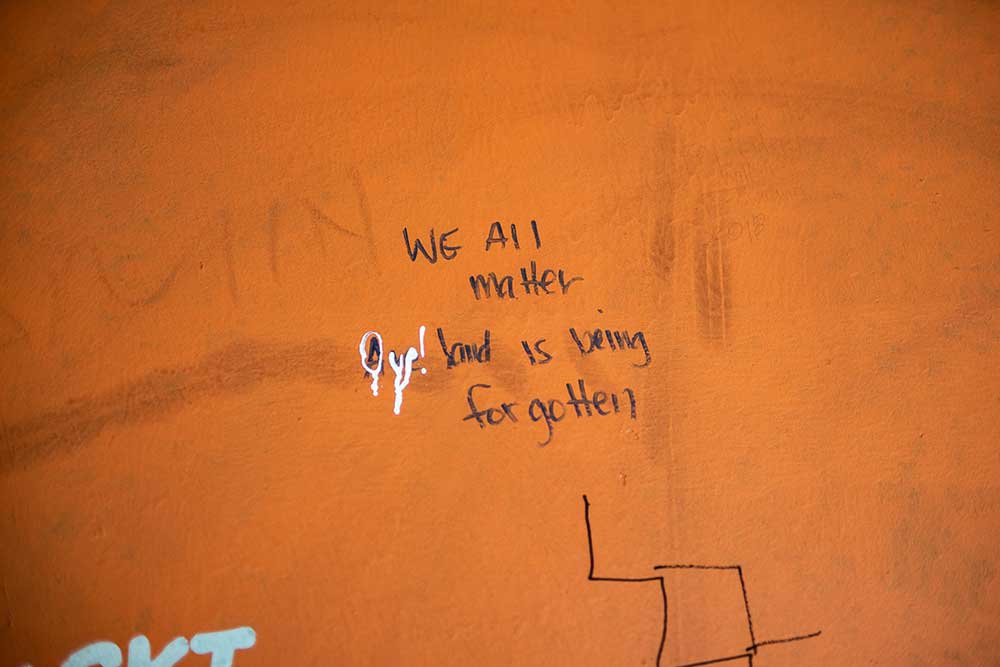 WE All
matter
Oye! land is being
forgotten